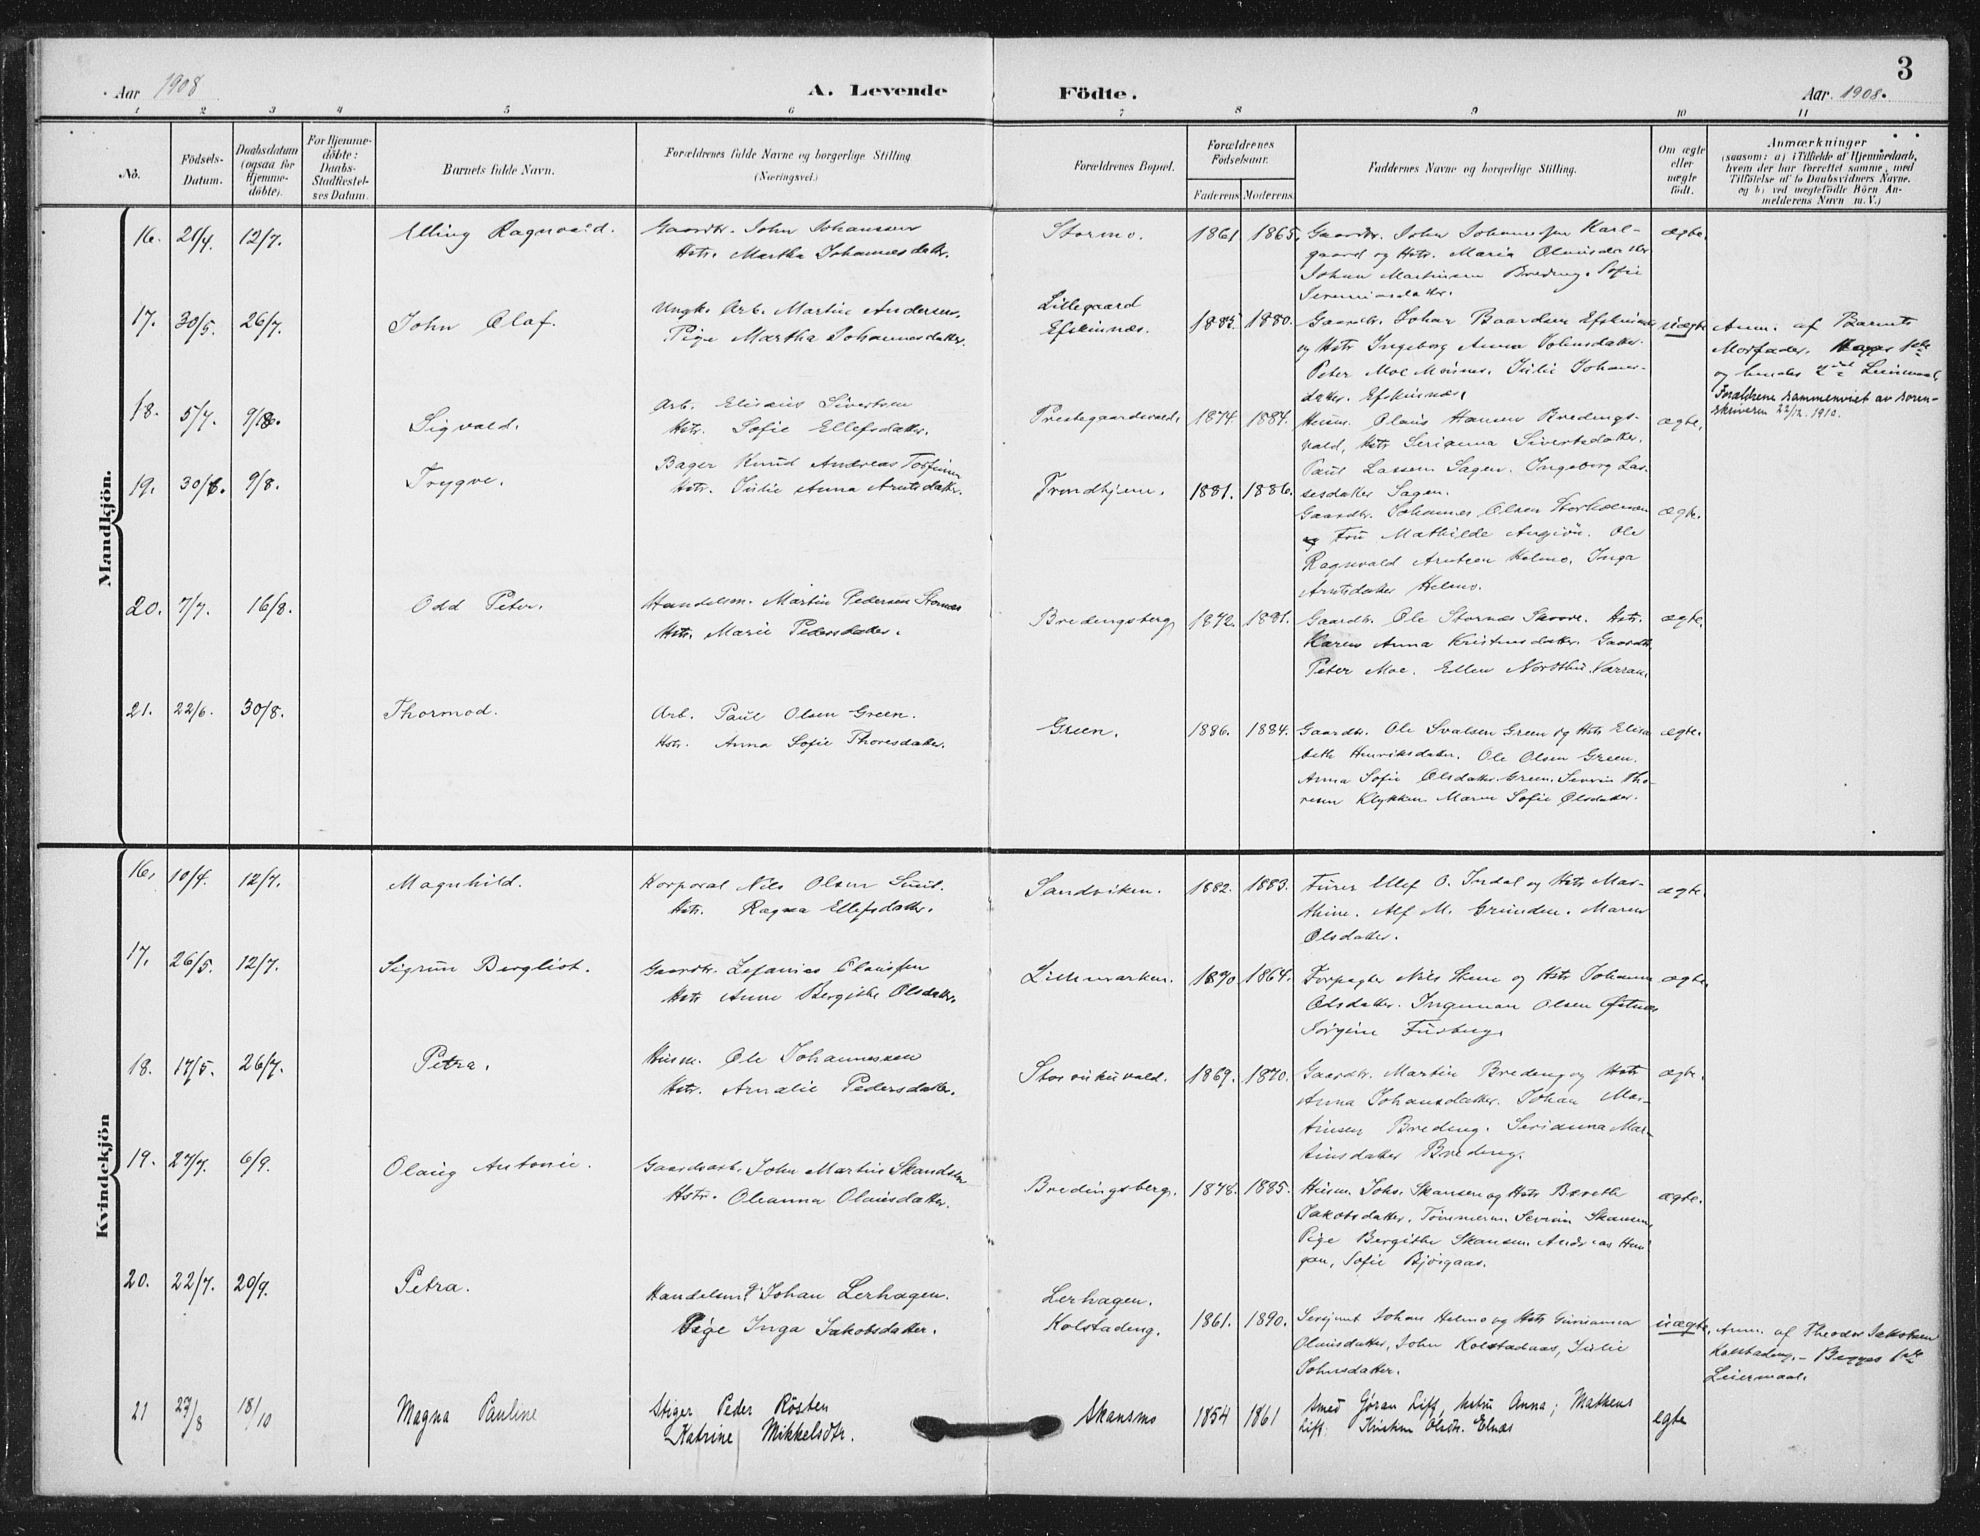 3
Aar 1908
A. Levende Födte.
Aar 1908.
1 2 3 4 5 6 7 8 9 10 11
No.
Födsels-
Datum.
Daabsdatum
(ogsaa for
Hjemme-
döbte).
For Hjemme-
döbte:
Daabs-
Stadfæstel-
ses Datum.
Barnets fulde Navn.
Forældrenes fulde Navne og borgerlige Stilling
(Næringsvei.)
Forældrenes Bopæl.
Forældrenes
Födselsaar.
Faderens Moderens
Faddernes Navne og borgerlige Stilling.
Om ægte
eller
uægte
födt.
Anmærkninger
(saasom: a) i Tilfælde af Hjemmedaab,
hvem der har forrettet samme, med
Tilföielse af to Daabsvidners Navne.
og b) ved uægtefödte Börn An-
melderens Navn m. V.)
Mandkjön.
16. 21/4. 12/7. Elling Ragnvald.
Gaardbr. John Johansen
Hstr. Martha Johannesdatter.
Stormo. 1861 1865.
Gaardbr. John Johannessen Karl-
gaard og Hstr. Maria
Johan Martinsen Breding. Sofie
ægte.
17. 30/5. 26/7. John Olaf.
Ungk. Arb. Martin Andersen.
Pige Martha Johannesdatter.
Lillegaard
Efskinnæs. 1885 1880.
Gaardbr. Johan Baardsen
og Hstr Ingeborg Anna Johnsdatter.
Peter Moe Moisnes. Julie Johans-
datter. Efskinnæs.
uægte
Anm. af Barnets
Morfader. 1ste
og hendes 2det Leiermaal.
Forældrene sammenviet av soren-
skriveren 22/12 1910.
18. 5/7. 9/8. Sigvald.
Arb. Elisæus Sivertsen
Hstr. Sofie Ellefsdatter.
Prestegaardsvald. 1874. 1884.
Husm. Olaus Hansen Bredings-
vald, Hstr Serianna Sivertsdatter.
Paul Lassen Sagen. Ingeborg Las-
sesdatter Sagen.
ægte.
19. 30/6. 9/8. Trygve.
Bager Knud Andreas Torfinnsen
Hstr. Julie Anna Arntsdatter.
Trondhjem. 1881. 1886.
Gaardbr. Johannes Olsen Storholmen
og Fru Mathilde Angvin. Ole
Ragnvald Arntsen Helmo. Inga
Arntsdatter Helmo.
ægte.
20. 7/7. 16/8. Odd Peter.
Handelsm. Martin Pedersen Stornæs
Hstr. Marie Pedersdatter.
Bredingsberg 1872. 1881.
Gaardbr. Ole Stornæs Skovre. Hstr.
Karen Anna Kristensdatter. Gaardbr.
Peter Moe. Ellen Nordthu. Værran.
ægte.
21. 22/6. 30/8. Thormod.
Arb. Paul Olsen Green.
Hstr. Anna Sofie Thoresdatter.
Green. 1886. 1884.
Gaardbr. Ole Svalsen Green og Hstr Elisa
beth Henriksdatter. Ole Olsen Green.
Anna Sofie Olsdatter Green. Severin Tho-
resen Klykken. Maren Sofie Olsdatter.
ægte.
Kvindekjön
16. 10/4. 12/7. Magnhild.
Korporal Nils Olsen
Hstr. Ragna Ellefsdatter.
Sandviken. 1882. 1883.
Furer Ellef O. Indal og Hstr Mar-
thine. Alf M. Grunden. Maren
Olsdatter.
ægte.
17. 26/5. 12/7. Sigrun Bergliot.
Gaardbr. Zefanias Claussen
Hstr Anne Bergithe Olsdatter.
Lillemarken. 1870 1864.
Forpagter Nils Stene og Hstr Johanna
Olsdatter. Ingeman Olsen Østnæs
Jörgine Furberg.
ægte.
18. 17/5. 26/7. Petra.
Husm. Ole Johannessen
Hstr. Amalie Pedersdatter.
Storvukuvald. 1869. 1870.
Gaardbr. Martin Breding og Hstr
Anna Johansdatter. Johan Mar-
tinsen Breding. Serianna Mar-
tinsdatter Breding.
ægte.
19. 27/7. 6/9. Olaug Antonie.
Gaardsarb. John Martin Skandsen
Hstr. Oleanna Olausdatter.
Bredingsberg. 1878. 1885.
Husm. Johs. Skansen og Hstr Berethe
Jakobsdatter. Tömmerm. Severin Skansen,
Pige Bergithe Skansen. Andreas
Sofie Bjórgaas.
ægte.
20. 22/7. 20/9. Petra.
Handelsm. Johan Lerhagen.
Pige Inga Jakobsdatter.
Lerhagen.
Kolstadeng. 1861. 1890.
Serjent Johan Helmo og Hstr Gurianna
Olausdatter, John Kolstadaas, Julie
Johnsdatter.
uægte.
Anm. af Theodor Jakobsen
Kolstadeng. – Begges 1ste
Leiermaal.
21 27/8 18/10 Magna Pauline
Stiger Peder Rösten
Katrine Mikkelsdtr.
Skansmo 1854 1861
Smed Göran Liff, Hstru Anna; Matheus
Liff. Kirsten Olsdtr. Elnæs
egte